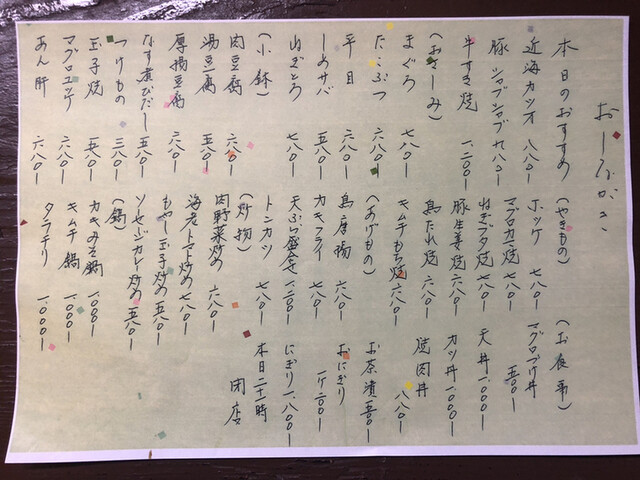 おしながき
本日のおすすめ
近海カツオ 八八〇ー
豚シャブシャブ 九八〇ー
牛すき焼 一、二〇〇ー
(おさしみ)
まぐろ 七八〇ー
たこぶつ 六八〇ー
平目 六八〇ー
しめサバ 五八〇ー
山いも 七八〇ー
(小鉢)
肉豆腐 六八〇ー
湯豆腐 五八〇ー
厚揚豆腐 六八〇ー
なす煮びたし 五八〇ー
つけもの 三八〇ー
玉子焼 五八〇ー
マグロユッケ 六八〇ー
あん肝 六八〇ー
(やきもの)
ホッケ 七八〇ー
マグロカマ焼 七八〇ー
ねぎブタ焼 七八〇ー
豚生姜焼 六八〇ー
鳥たれ焼 六八〇ー
キムチもち焼 六八〇ー
(あげもの)
鳥唐揚 六八〇ー
カキフライ 七八〇ー
天ぷら盛合せ 一、二〇〇ー
トンカツ 七八〇ー
(炒物)
肉野菜炒め 六八〇ー
海老トマト炒め 七八〇ー
もやし玉子炒め 五八〇ー
ソーセージカレー炒め 五八〇ー
(鍋)
カキみそ鍋 一、〇〇〇ー
キムチ鍋 一、〇〇〇ー
タラチリ 一、〇〇〇ー
(お食事)
マグロづけ丼
天丼 一、〇〇〇ー
カツ丼 一、〇〇〇ー
焼肉丼 八八〇ー
お茶漬 五〇〇ー
おにぎり 一ケ二〇〇ー
にぎり 一、八〇〇ー
本日二十一時
閉店